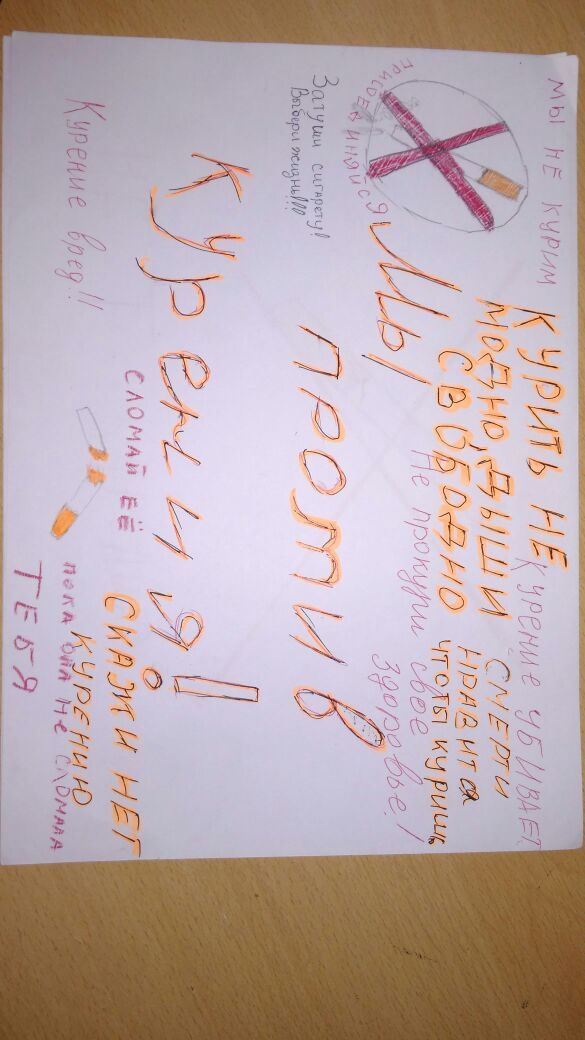 МЫ НЕ КУРИМ
ПРИСОЕДИНЯЙСЯ
Курение убивает
КУРИТЬ НЕ
МОДНО, ДЫШИ
СВОБОДНО
СМЕРТИ
НРАВИТСЯ
ЧТО ТЫ КУРИШЬ
Не прокури свое
здоровье!
Затуши сигрету!
Выбери жизнь!!!
Мы
против
Курения!
Курение вред!!
СЛОМАЙ ЕЁ
ПОКА ОНА НЕ СЛОМАЛА
ТЕБЯ
СКАЖИ НЕТ
КУРЕНИЮ